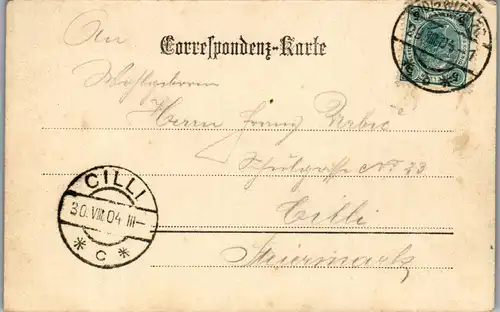 An
Correspondenz-Karte
Wohlgeboren
Herrn Franz Urbič
Schulgasse No 23
Cilli
Steiermark
CILLI
30.VIII.04 III
* C *